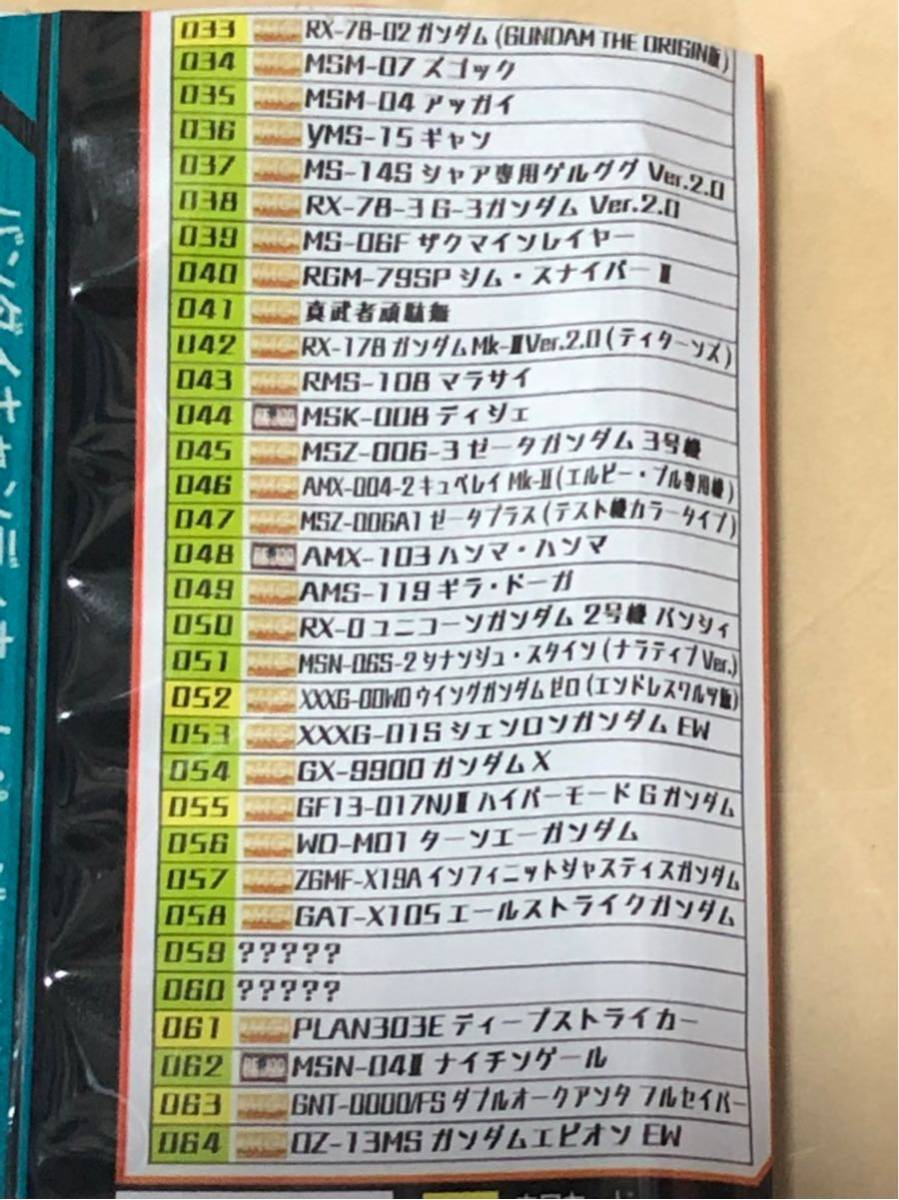 033 MG RX-78-02 ガンダム (GUNDAM THE ORIGIN版)
034 MG MSM-07 ズゴック
035 MG MSM-04 アッガイ
036 MG YMS-15 ギャン
037 MG MS-14S シャア専用ゲルググ Ver.2.0
038 MG RX-78-3 G-3ガンダム Ver.2.0
039 MG MS-06F ザクマインレイヤー
040 MG RGM-79SP ジム・スナイパーⅡ
041 MG 真武者頑駄無
042 MG RX-178 ガンダムMk-ⅡVer.2.0(ティターンズ)
043 MG RMS-108 マラサイ
044 RE/100 MSK-008 ディジェ
045 MG MSZ-006-3 ゼータガンダム 3号機
046 MG AMX-004-2 キュベレイ Mk-Ⅱ(エルピー・プル専用機)
047 MG MSZ-006A1 ゼータプラス(テスト機カラータイプ)
048 RE/100 AMX-103 ハンマ・ハンマ
049 MG AMS-119 ギラ・ドーガ
050 MG RX-0 ユニコーンガンダム 2号機 バンシィ
051 MG MSN-06S-2 シナンジュ・スタイン(ナラティブVer.)
052 MG XXXG-00W0 ウイングガンダムゼロ(エンドレスワルツ版)
053 MG XXXG-01S シェンロンガンダム EW
054 MG GX-9900 ガンダムX
055 MG GF13-017NJⅡ ハイパーモード Gガンダム
056 MG WD-M01 ターンエーガンダム
057 MG ZGMF-X19A インフィニットジャスティスガンダム
058 MG GAT-X105 エールストライクガンダム
059 ?????
060 ?????
061 MG PLAN303E ディープストライカー
062 RE/100 MSN-04Ⅱ ナイチンゲール
063 MG GNT-0000/FS ダブルオークアンタ フルセイバー
064 MG OZ-13MS ガンダムエピオン EW